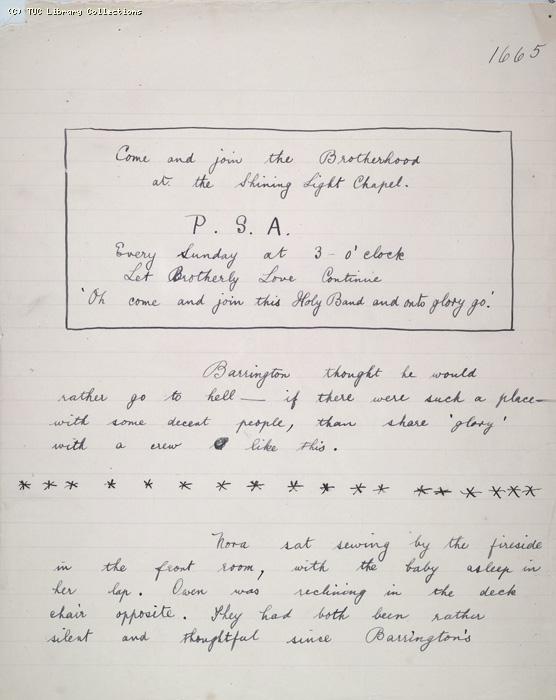 (C) TUC Library Collections
1665
Come and join the Brotherhood
at the Shining Light Chapel.
P. S. A.
Every Sunday at 3 - o'clock
Let Brotherly Love Continue
'Oh come and join this Holy Band and onto glory go.'
Barrington thought he would
rather go to hell — if there were such a place —
with some decent people, than share 'glory'
with a crew like this.
* * * * * * * * * * * * * * * * * * *
Nora sat sewing by the fireside
in the front room, with the baby asleep in
her lap. Owen was reclining in the deck
chair opposite. They had both been rather
silent and thoughtful since Barrington's